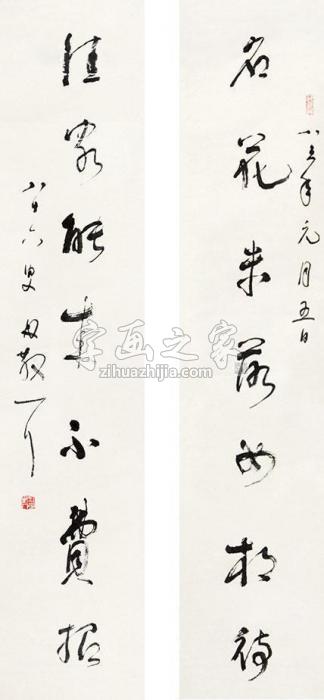 八三年元月五日
名花未落如相待
佳客能來不費招
八十六叟
字画之家
zihuazhijia.com